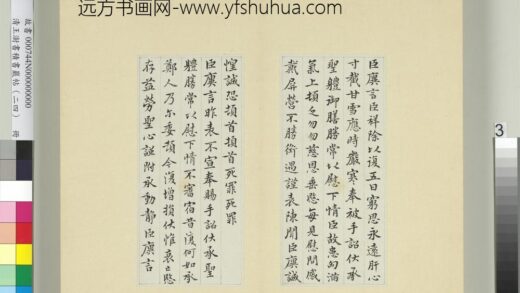 远方书画网-www.yfshuhua.com
臣廙言臣祥除以復五日窮思永遠肝心
寸截甘雪應時嚴寒奉被手詔伏承
聖體御膳勝常以慰下情臣故患匈滿
氣上頓乏勿勿慈恩垂愍每見慰問感
戴屏營不勝銜遇謹表陳聞臣廙誠
惶誠恐頓首頓首死罪死罪
臣廙言昨表不宣奉賜手詔伏承聖
體勝常以慰下情不審宿昔復何如承
鄭人乃尔委頓今復增損伏惟哀亡愍
存益勞聖心謹附承動靜臣廙言
故書 000744N000000000
清王澍書積書巖帖(二四) 冊
3